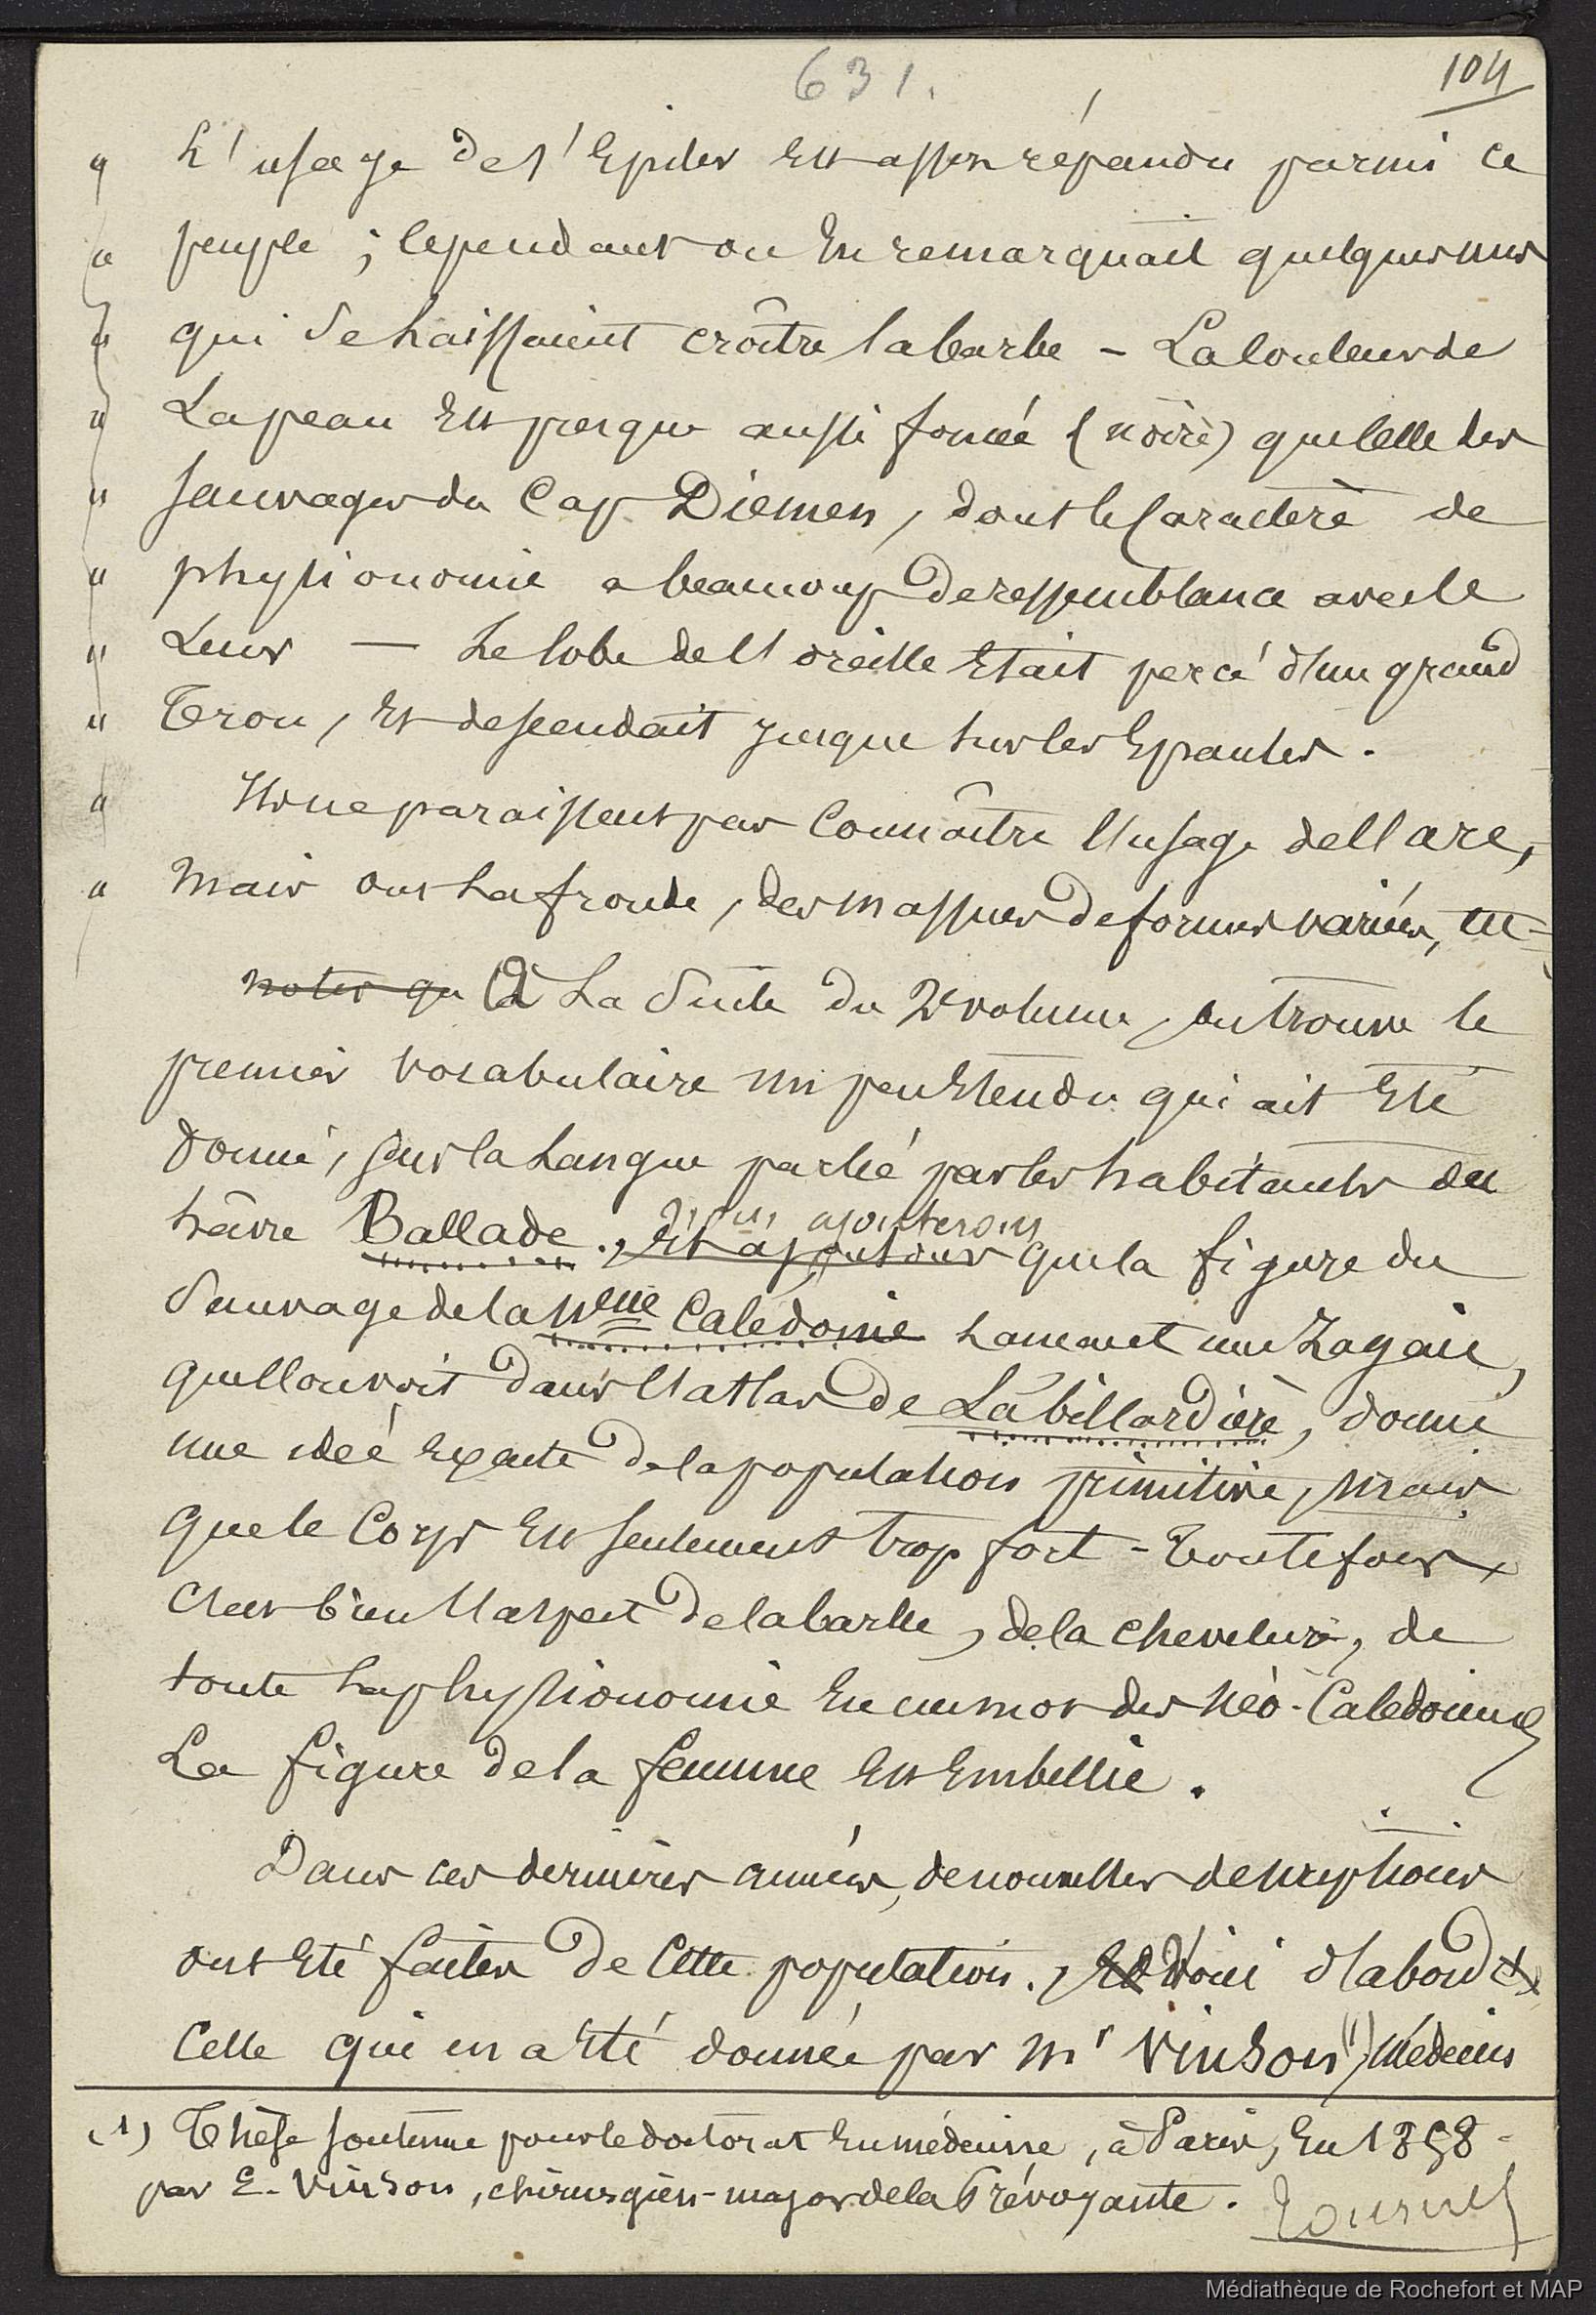 631.
104
" L'usage de s'Epiler Est assez répandu parmi ce
" peuple ; cependant on En remarquait quelques uns
" qui se Laissaient croître la barbe - La couleur de
" La peau Est presque aussi foncée (noire) que celle des
" sauvages du Cap Diemen, dont le Caractère de
" physionomie a beaucoup de ressemblance avec le
" Leur — Le lobe de l'oreille Etait percé d'un grand
" Trou, Et descendait jusque sur les Epaules.
" Ils ne paraissent pas Connaître l'usage de l'arc,
" Mais ont La fronde, des massues de formes variées,
noter qu A La Suite du 2e volume, on trouve le
premier vocabulaire un peu Etendu qui ait Eté
donné, sur la Langue parlée par les habitants du
hâvre Ballade., Et ajoutons ajouterons que la figure du
Sauvage de la Nelle Calédonie Lançant une Zagaie,
que l'on voit dans l'atlas de Labillardière, donne
une idée Exacte de la population primitive, Mais
que le Corps Est seulement trop fort - Toutefois
C'est bien l'aspect de la barbe, de la chevelure, de
toute La physionomie En un mot des Néo-Calédoniens
La figure de la femme Est Embellie.
Dans ces dernières années, de nouvelles descriptions
ont Eté faites de Cette population., Et Voici d'abord
Celle qui en a Eté donnée par Mr Vinson (1), Médecin
(1) Thèse soutenue pour le doctorat En médecine, à Paris, En 1858 -
par E. Vinson, chirurgien-major de la Prévoyante.
Médiathèque de Rochefort et MAP